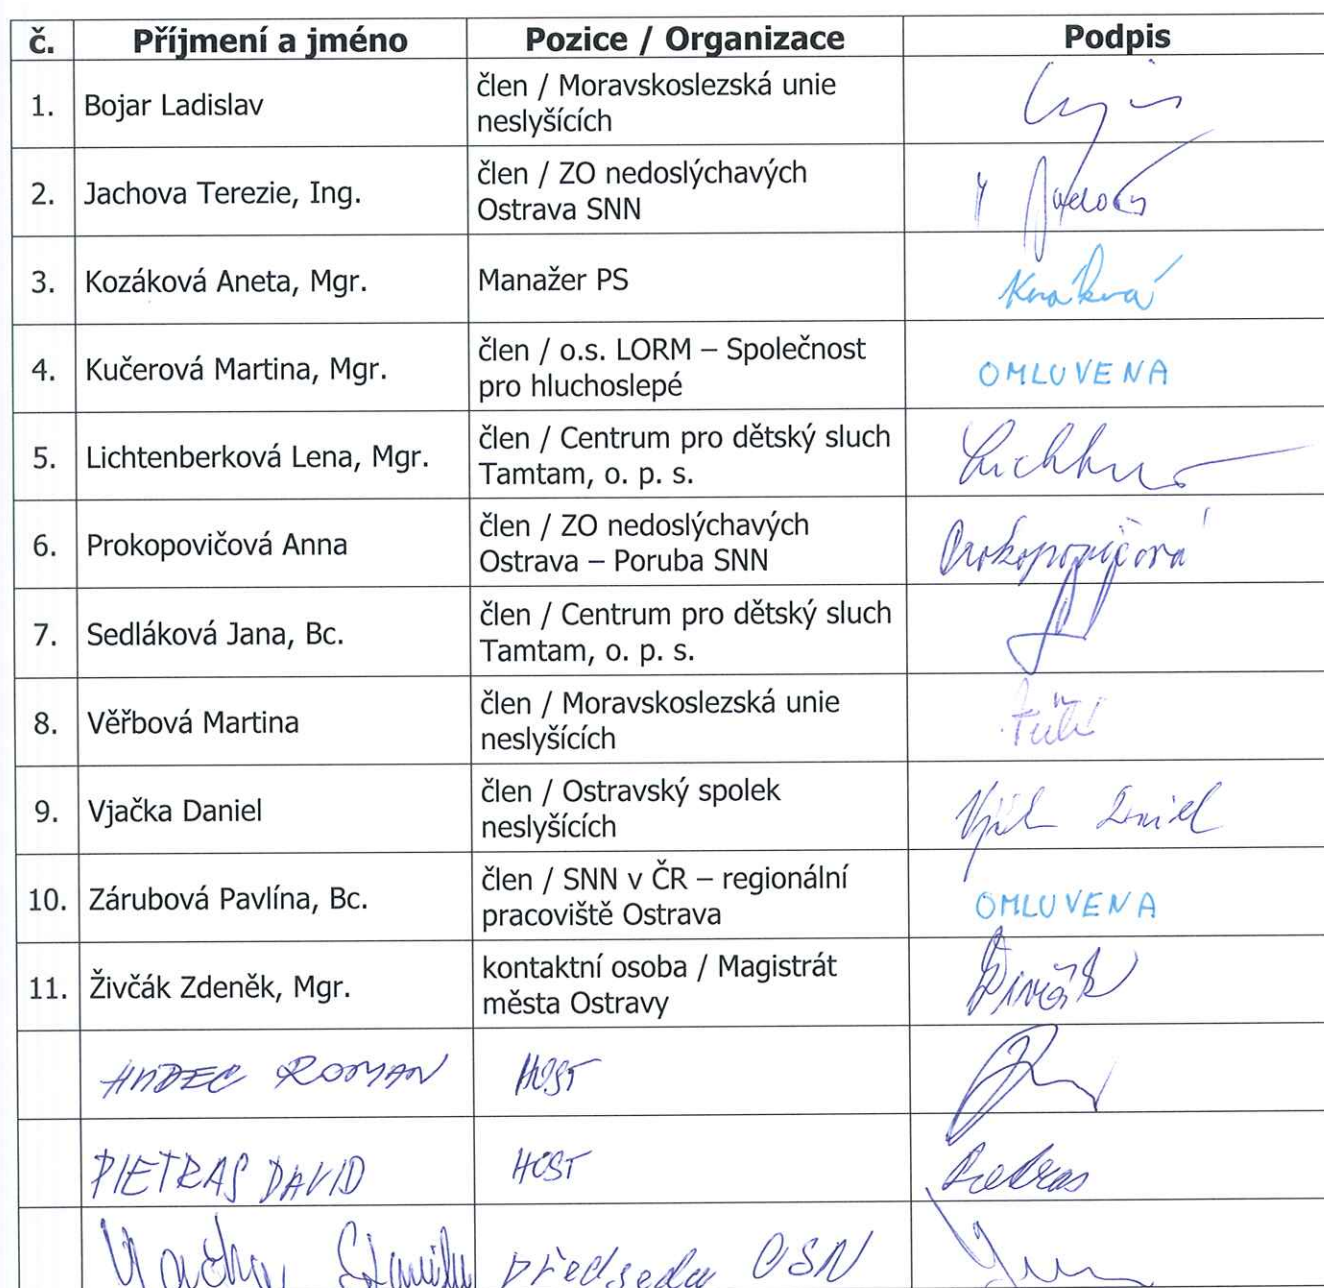 č. Příjmení a jméno Pozice / Organizace Podpis
1. Bojar Ladislav člen / Moravskoslezská unie
neslyšících
2. Jachova Terezie, Ing. člen / ZO nedoslýchavých
Ostrava SNN
3. Kozáková Aneta, Mgr. Manažer PS Kozáková
4. Kučerová Martina, Mgr. člen / o.s. LORM – Společnost
pro hluchoslepé OMLUVENA
5. Lichtenberková Lena, Mgr. člen / Centrum pro dětský sluch
Tamtam, o. p. s.
6. Prokopovičová Anna člen / ZO nedoslýchavých
Ostrava – Poruba SNN Prokopovičová
7. Sedláková Jana, Bc. člen / Centrum pro dětský sluch
Tamtam, o. p. s.
8. Věřbová Martina člen / Moravskoslezská unie
neslyšících
9. Vjačka Daniel člen / Ostravský spolek
neslyšících Daniel
10. Zárubová Pavlína, Bc. člen / SNN v ČR – regionální
pracoviště Ostrava OMLUVENA
11. Živčák Zdeněk, Mgr. kontaktní osoba / Magistrát
města Ostravy Živčák
ROMAN HOST
PIETRAS DAVID HOST Pietras
předseda OSN